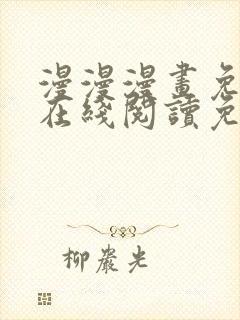 漫漫漫畫免
在綫閱讀免
柳巖光